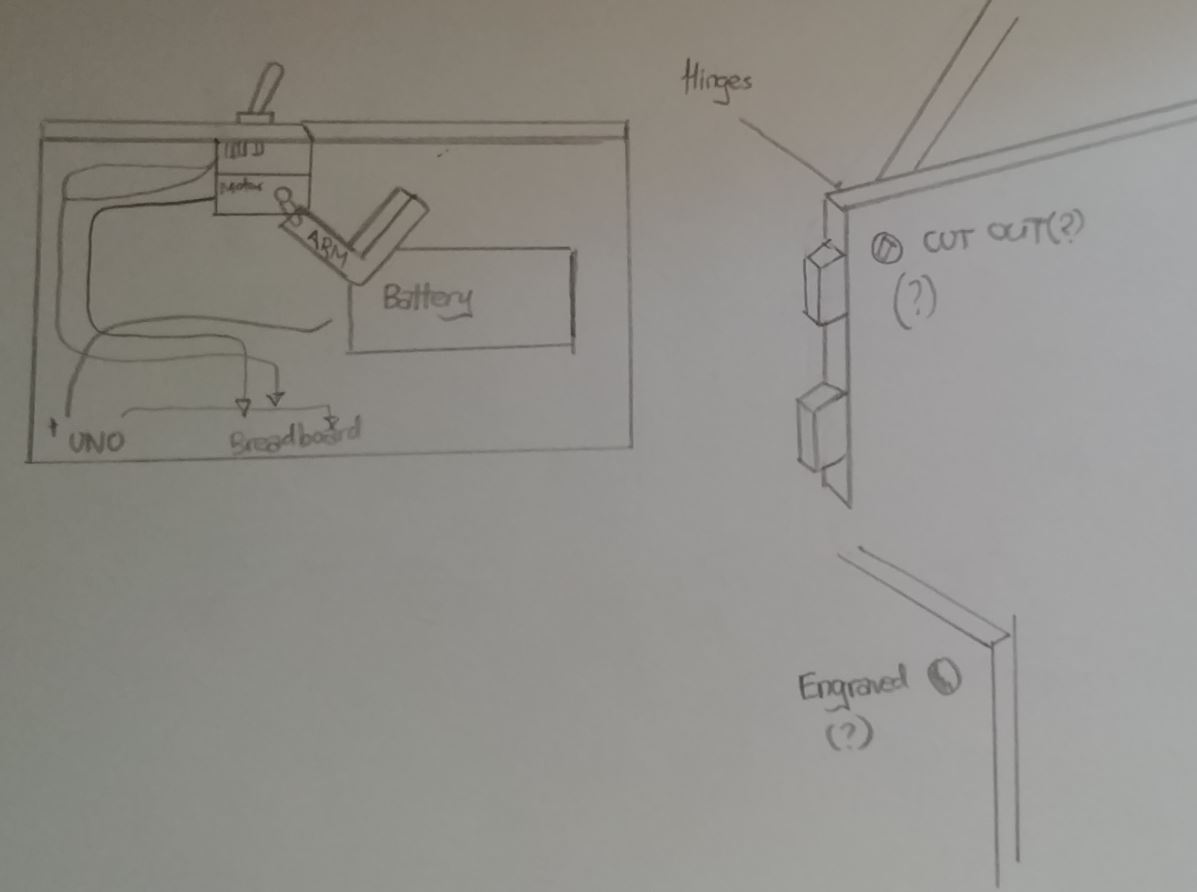 Motor
ARM
Battery
UNO
Breadboard
Hinges
CUT OUT(?)
(?)
Engraved
(?)